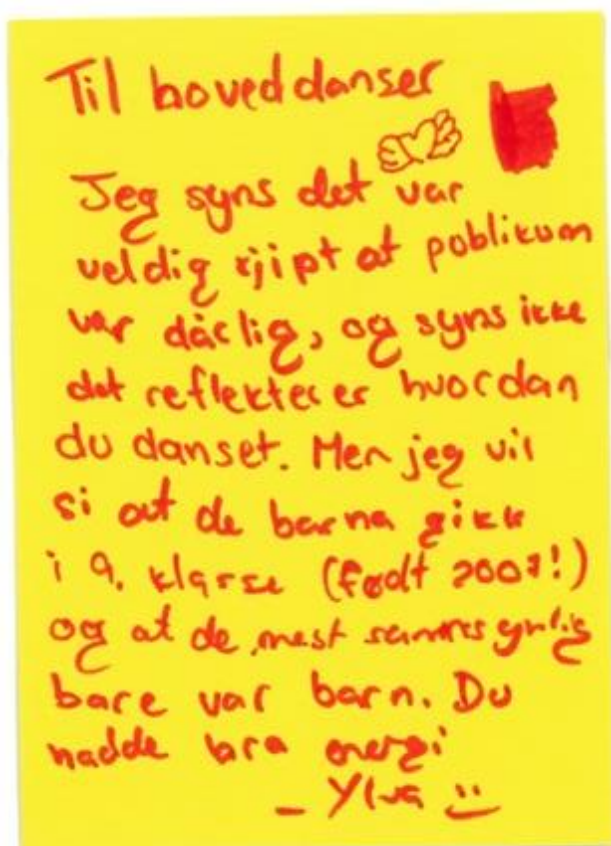 Til hoveddanser
Jeg syns det var
veldig kjipt at poblikum
var dårlig, og syns ikke
det reflekterer hvordan
du danset. Men jeg vil
si at de barna gikk
i 9. klasse (født 2007!)
og at de mest sannsynlig
bare var barn. Du
hadde bra energi
- Ylva :)